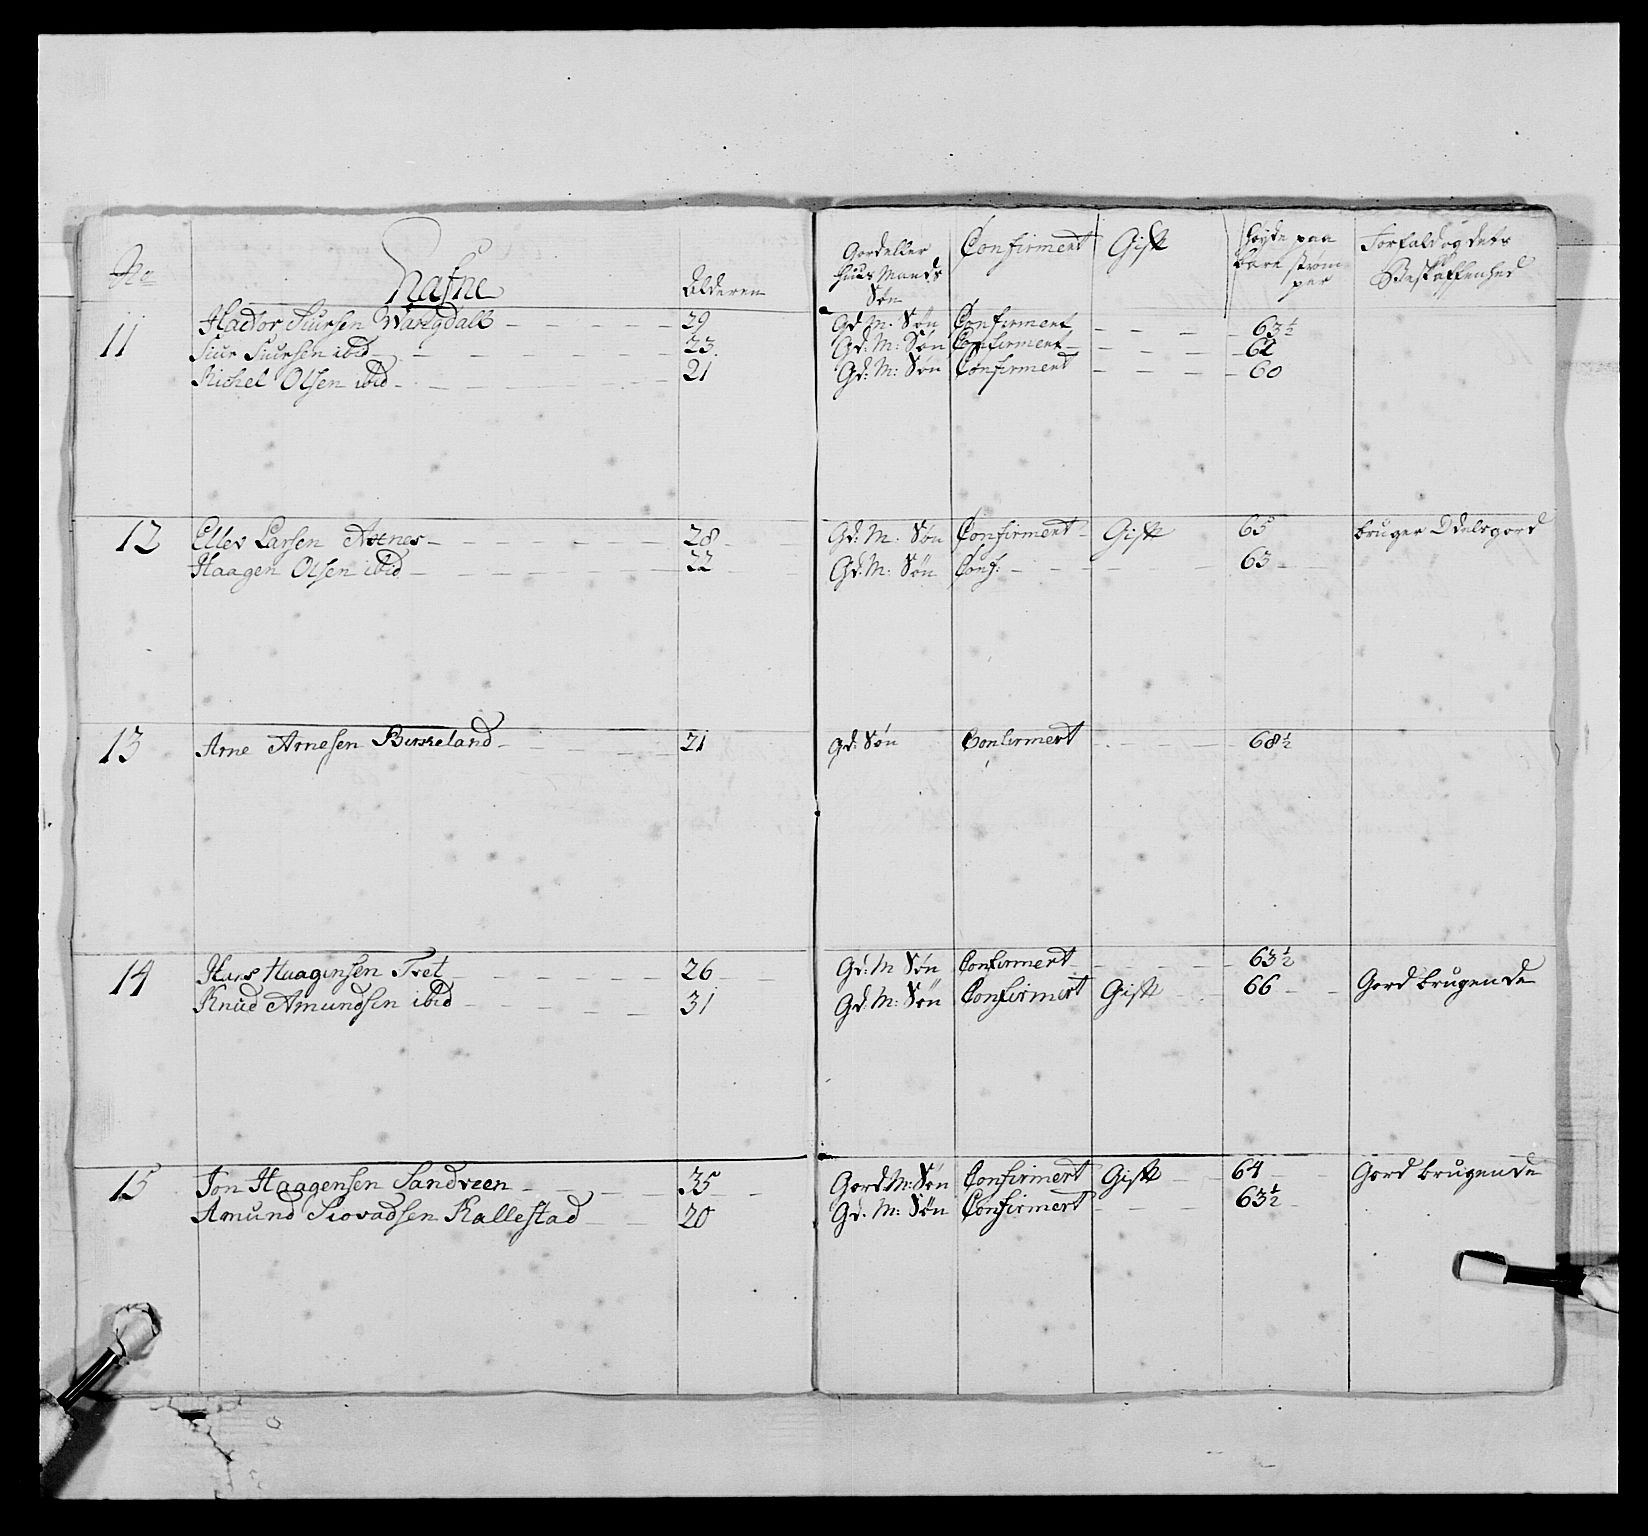 No Nafne Alderen Gord eller Huus Mands Søn Confirmert Gift høyde paa bare strømper Forfald og dets Beskaffenhed
11 Hadvor Siursen Wangdall 29 Gd: M: Søn Confirmert 63½
Siur Siursen ibid 23 Gd: M: Søn Confirmert 62
Michel Olsen ibid 21 Gd: M: Søn Confirmert 60
12 Ellev Larsen Axnes 28 Gd: M: Søn Confirmert Gift 65 bruger Odelsgord
Haagen Olsen ibid 22 Gd: M: Søn Conf: 63
13 Arne Arnesen Birkeland 21 Gd: Søn Confirmert 68½
14 Hans Haagensen Tvet 26 Gd: M Søn Confirmert 63½
Knud Amundsen ibid 31 Gd: M: Søn Confirmert Gift 66 Gord brugende
15 Jon Haagensen Sandveen 35 Gord M: Søn Confirmert Gift 64 Gord brugende
Amund Siovadsen Kallestad 20 Gd: M: Søn Confirmert 63½